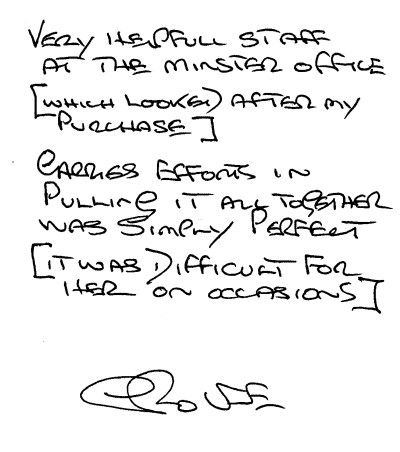 VERY HELPFULL STAFF
AT THE MINSTER OFFICE
[WHICH LOOKED AFTER MY
PURCHASE]
CARRIES EFFORTS IN
PULLING IT ALL TOGETHER
WAS SIMPLY PERFECT
[IT WAS DIFFICULT FOR
HER ON OCCASIONS]